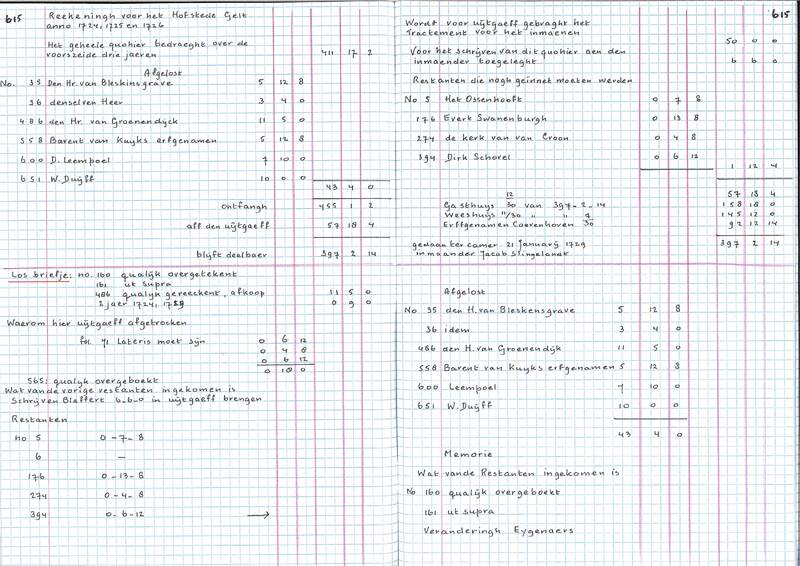 615 Reekeningh voor het Hofstede Gelt
anno 1724, 1725 en 1726
Het geheele quohier bedraeght over de
voorszeide drie jaeren 411 17 2
Afgelost
No. 35 Den Hr. van Bleskinsgrave 5 12 8
36 denselven Heer 3 4 0
486 den Hr. van Groenendijck 11 5 0
558 Barent van Kuyks erfgenamen 5 12 8
600 D. Leempoel 7 10 0
651 W. Duÿff 10 0 0
43 4 0
ontfangh 455 1 2
aff den uijtgaeff 57 18 4
blijft deelbaer 397 2 14
Los briefje: no. 160 qualijk overgetekent
161 ut supra
486 qualyn gereeckent, afkoop 11 5 0
2 jaer 1724, 1725 0 9 0
Waerom hier uijtgaeff afgetrocken
fol 71 Lateris moet sijn 0 6 12
0 4 8
0 6 12
0 18 0
565: qualyk overgeboekt
Wat van de vorige restanten ingekomen is
Schrijven Blaffert 6-6-0 in uijtgaeff brengen
Restanten
no 5 0-7-8
6 —
176 0-13-8
274 0-4-8
394 0-6-12 →
615
Wordt voor uijtgaeff gebraght het
Tractement voor het inmaenen 50 0 0
Voor het schrijven van dit quohier aen den
inmaender toegeleght 6 6 0
Restanten die nogh geinnet moeten werden
No 5 Het Ossenhooft 0 7 8
176 Evert Swanenburgh 0 13 8
274 de kerk van van Croon 0 4 8
394 Dirk Schorel 0 6 12
1 12 4
57 18 4
12
Gasthuys 30 van 397-2-14 158 18 0
Weeshuys 11/30 " " 145 12 0
7
Erffgenamen Coevenhoven 30 92 12 14
gedaan ter camer 21 januarij 1729 397 2 14
inmaander Jacob Slingelandt
Afgelost
No 35 den H. van Bleskensgrave 5 12 8
36 idem 3 4 0
486 den H. van Groenendÿk 11 5 0
558 Barent van Kuyks erfgenamen 5 12 8
600 Leempoel 7 10 0
651 W. Duÿff 10 0 0
43 4 0
Memorie
Wat vande Restanten ingekomen is
No 160 qualijk overgeboekt
161 ut supra
Veranderingh Eygenaers